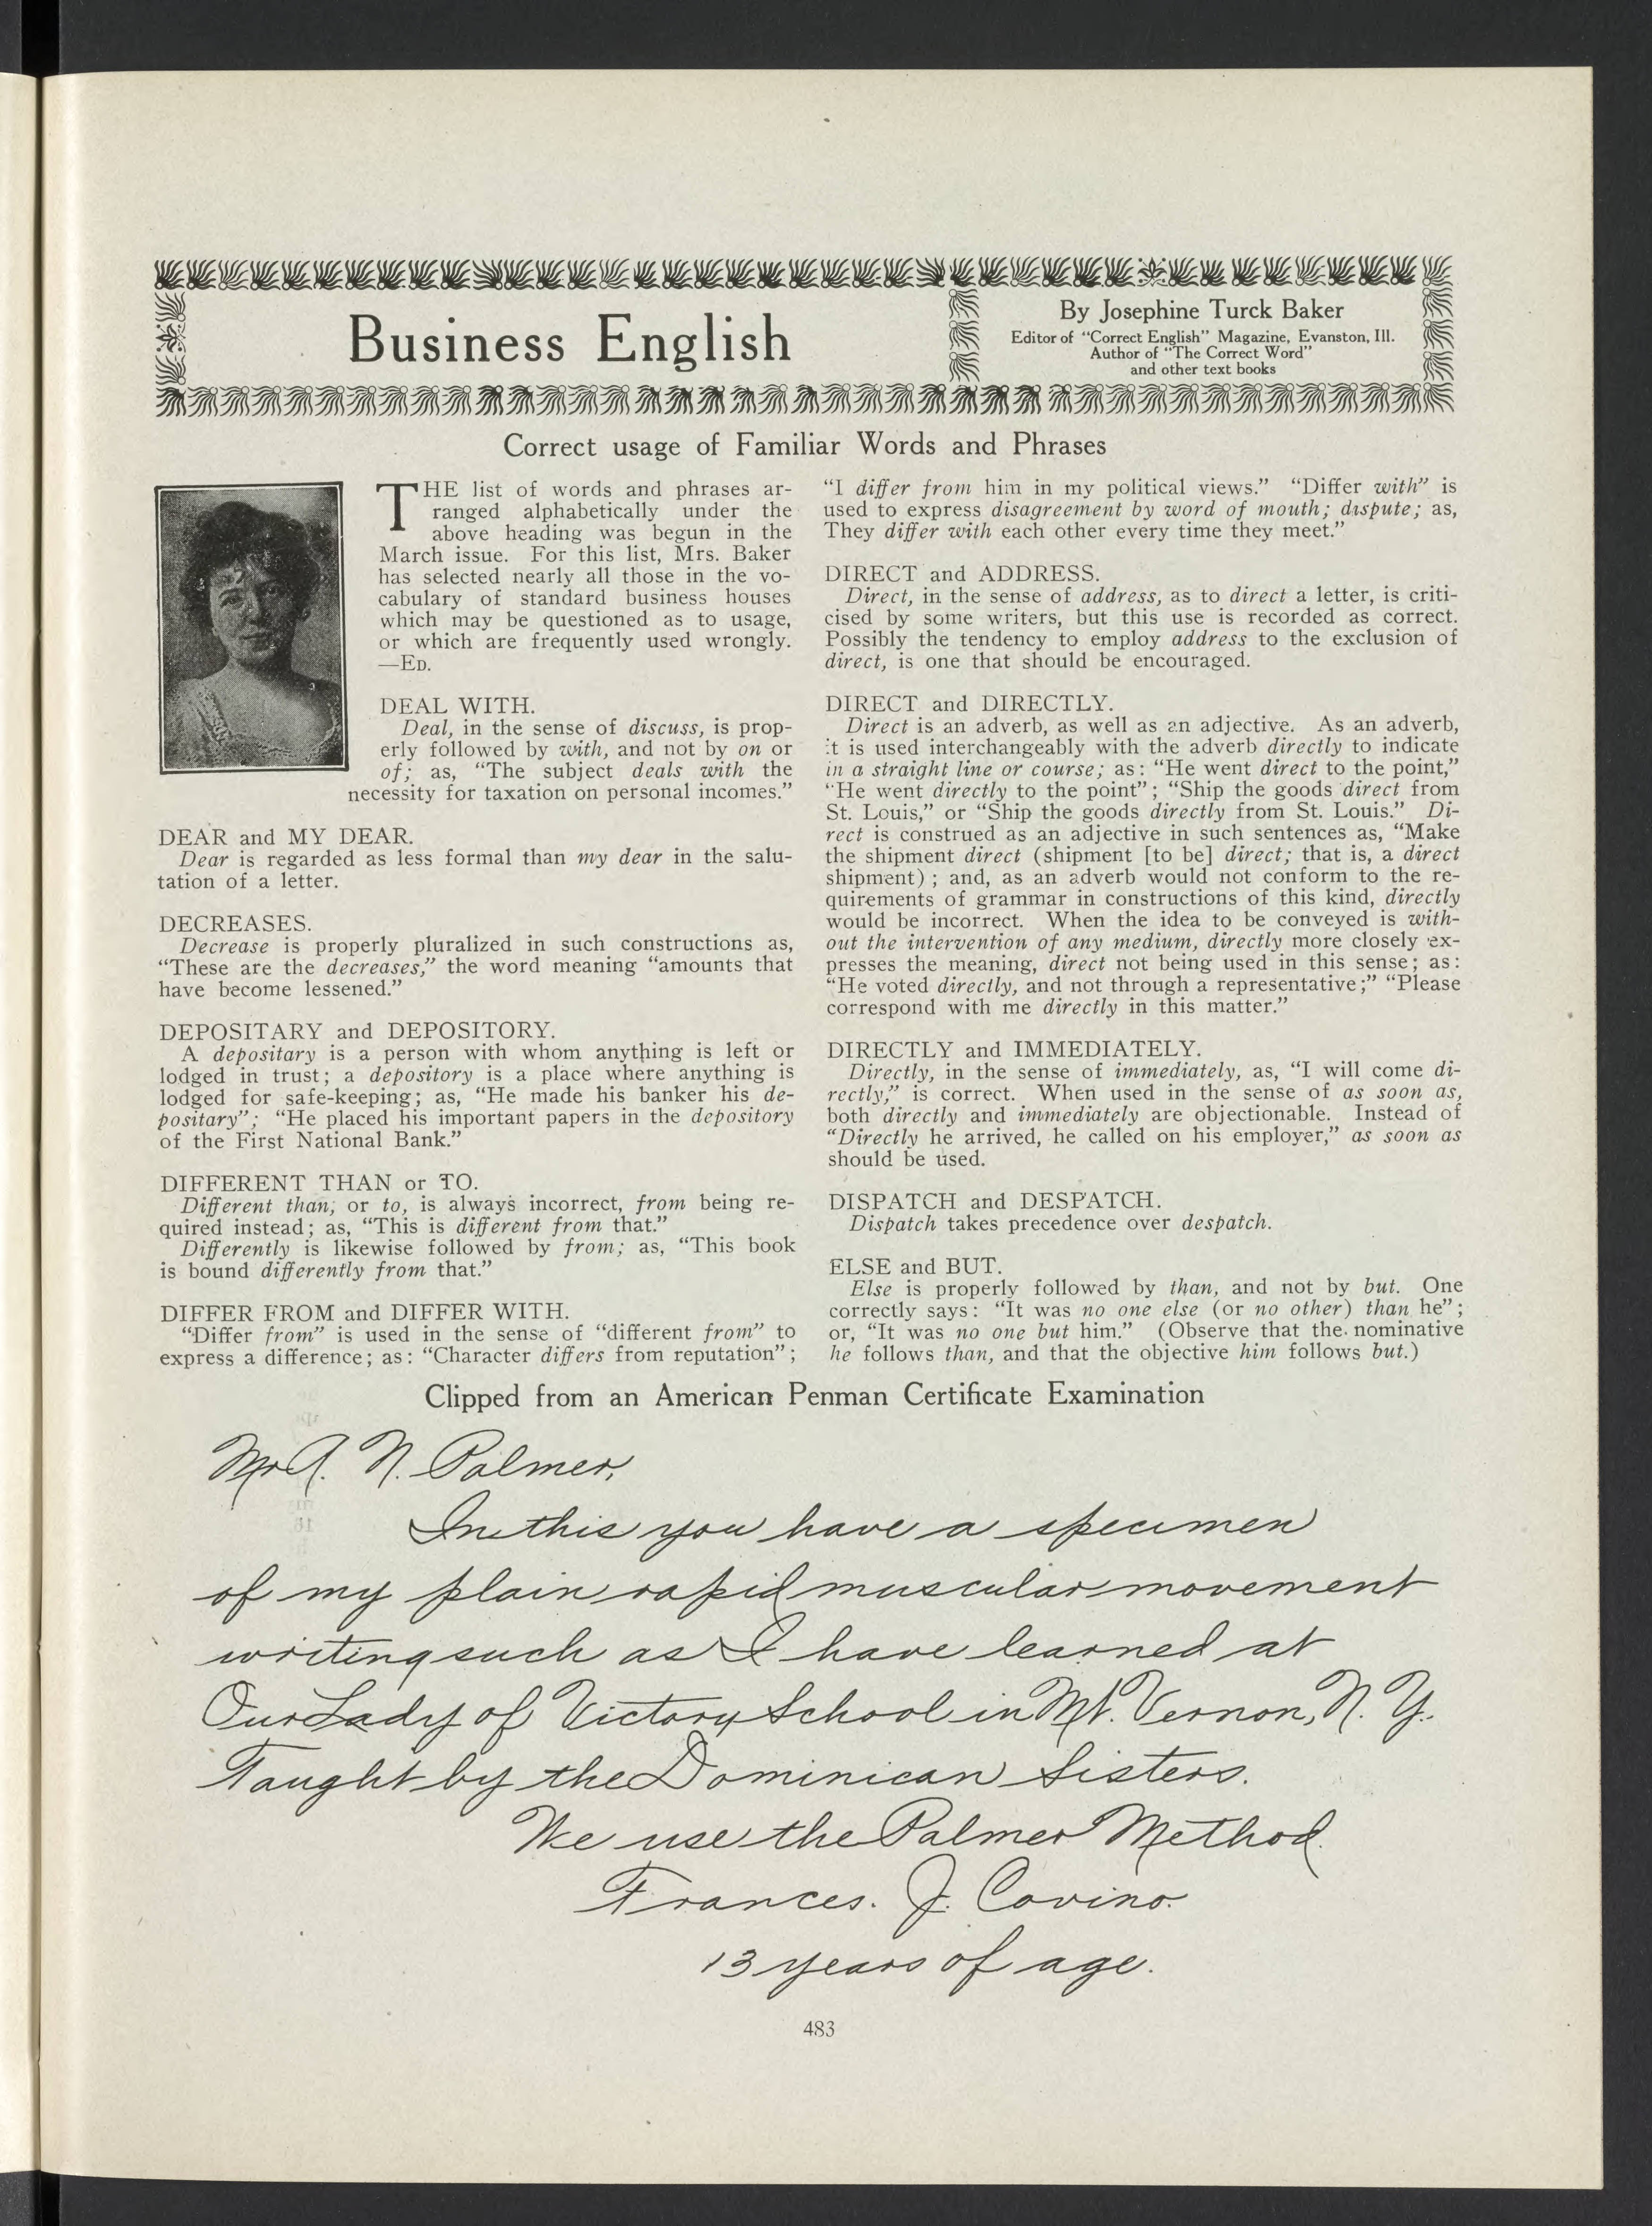 Business English
By Josephine Turck Baker
Editor of "Correct English" Magazine, Evanston, Ill.
Author of "The Correct Word"
and other text books
Correct usage of Familiar Words and Phrases
THE list of words and phrases ar-
ranged alphabetically under the
above heading was begun in the
March issue. For this list, Mrs. Baker
has selected nearly all those in the vo-
cabulary of standard business houses
which may be questioned as to usage,
or which are frequently used wrongly.
—ED.
DEAL WITH.
Deal, in the sense of discuss, is prop-
erly followed by with, and not by on or
of; as, "The subject deals with the
necessity for taxation on personal incomes."
DEAR and MY DEAR.
Dear is regarded as less formal than my dear in the salu-
tation of a letter.
DECREASES.
Decrease is properly pluralized in such constructions as,
"These are the decreases," the word meaning "amounts that
have become lessened."
DEPOSITARY and DEPOSITORY.
A depositary is a person with whom anything is left or
lodged in trust; a depository is a place where anything is
lodged for safe-keeping; as, "He made his banker his de-
positary"; "He placed his important papers in the depository
of the First National Bank."
DIFFERENT THAN or TO.
Different than, or to, is always incorrect, from being re-
quired instead; as, "This is different from that."
Differently is likewise followed by from; as, "This book
is bound differently from that."
DIFFER FROM and DIFFER WITH.
"Differ from" is used in the sense of "different from" to
express a difference; as: "Character differs from reputation";
"I differ from him in my political views." "Differ with" is
used to express disagreement by word of mouth; dispute; as,
They differ with each other every time they meet."
DIRECT and ADDRESS.
Direct, in the sense of address, as to direct a letter, is criti-
cised by some writers, but this use is recorded as correct.
Possibly the tendency to employ address to the exclusion of
direct, is one that should be encouraged.
DIRECT and DIRECTLY.
Direct is an adverb, as well as an adjective. As an adverb,
it is used interchangeably with the adverb directly to indicate
in a straight line or course; as: "He went direct to the point,"
"He went directly to the point"; "Ship the goods direct from
St. Louis," or "Ship the goods directly from St. Louis." Di-
rect is construed as an adjective in such sentences as, "Make
the shipment direct (shipment [to be] direct; that is, a direct
shipment); and, as an adverb would not conform to the re-
quirements of grammar in constructions of this kind, directly
would be incorrect. When the idea to be conveyed is with-
out the intervention of any medium, directly more closely ex-
presses the meaning, direct not being used in this sense; as:
"He voted directly, and not through a representative;" "Please
correspond with me directly in this matter."
DIRECTLY and IMMEDIATELY.
Directly, in the sense of immediately, as, "I will come di-
rectly," is correct. When used in the sense of as soon as,
both directly and immediately are objectionable. Instead of
"Directly he arrived, he called on his employer," as soon as
should be used.
DISPATCH and DESPATCH.
Dispatch takes precedence over despatch.
ELSE and BUT.
Else is properly followed by than, and not by but. One
correctly says: "It was no one else (or no other) than he";
or, "It was no one but him." (Observe that the nominative
he follows than, and that the objective him follows but.)
Clipped from an American Penman Certificate Examination
Mr A. N. Palmer,
In this you have a specimen
of my plain rapid muscular movement
writing such as I have learned at
Our Lady of Victory School in Mt. Vernon, N. Y.
Taught by the Dominican Sisters.
We use the Palmer Method.
Frances. J. Covino.
13 years of age.
483